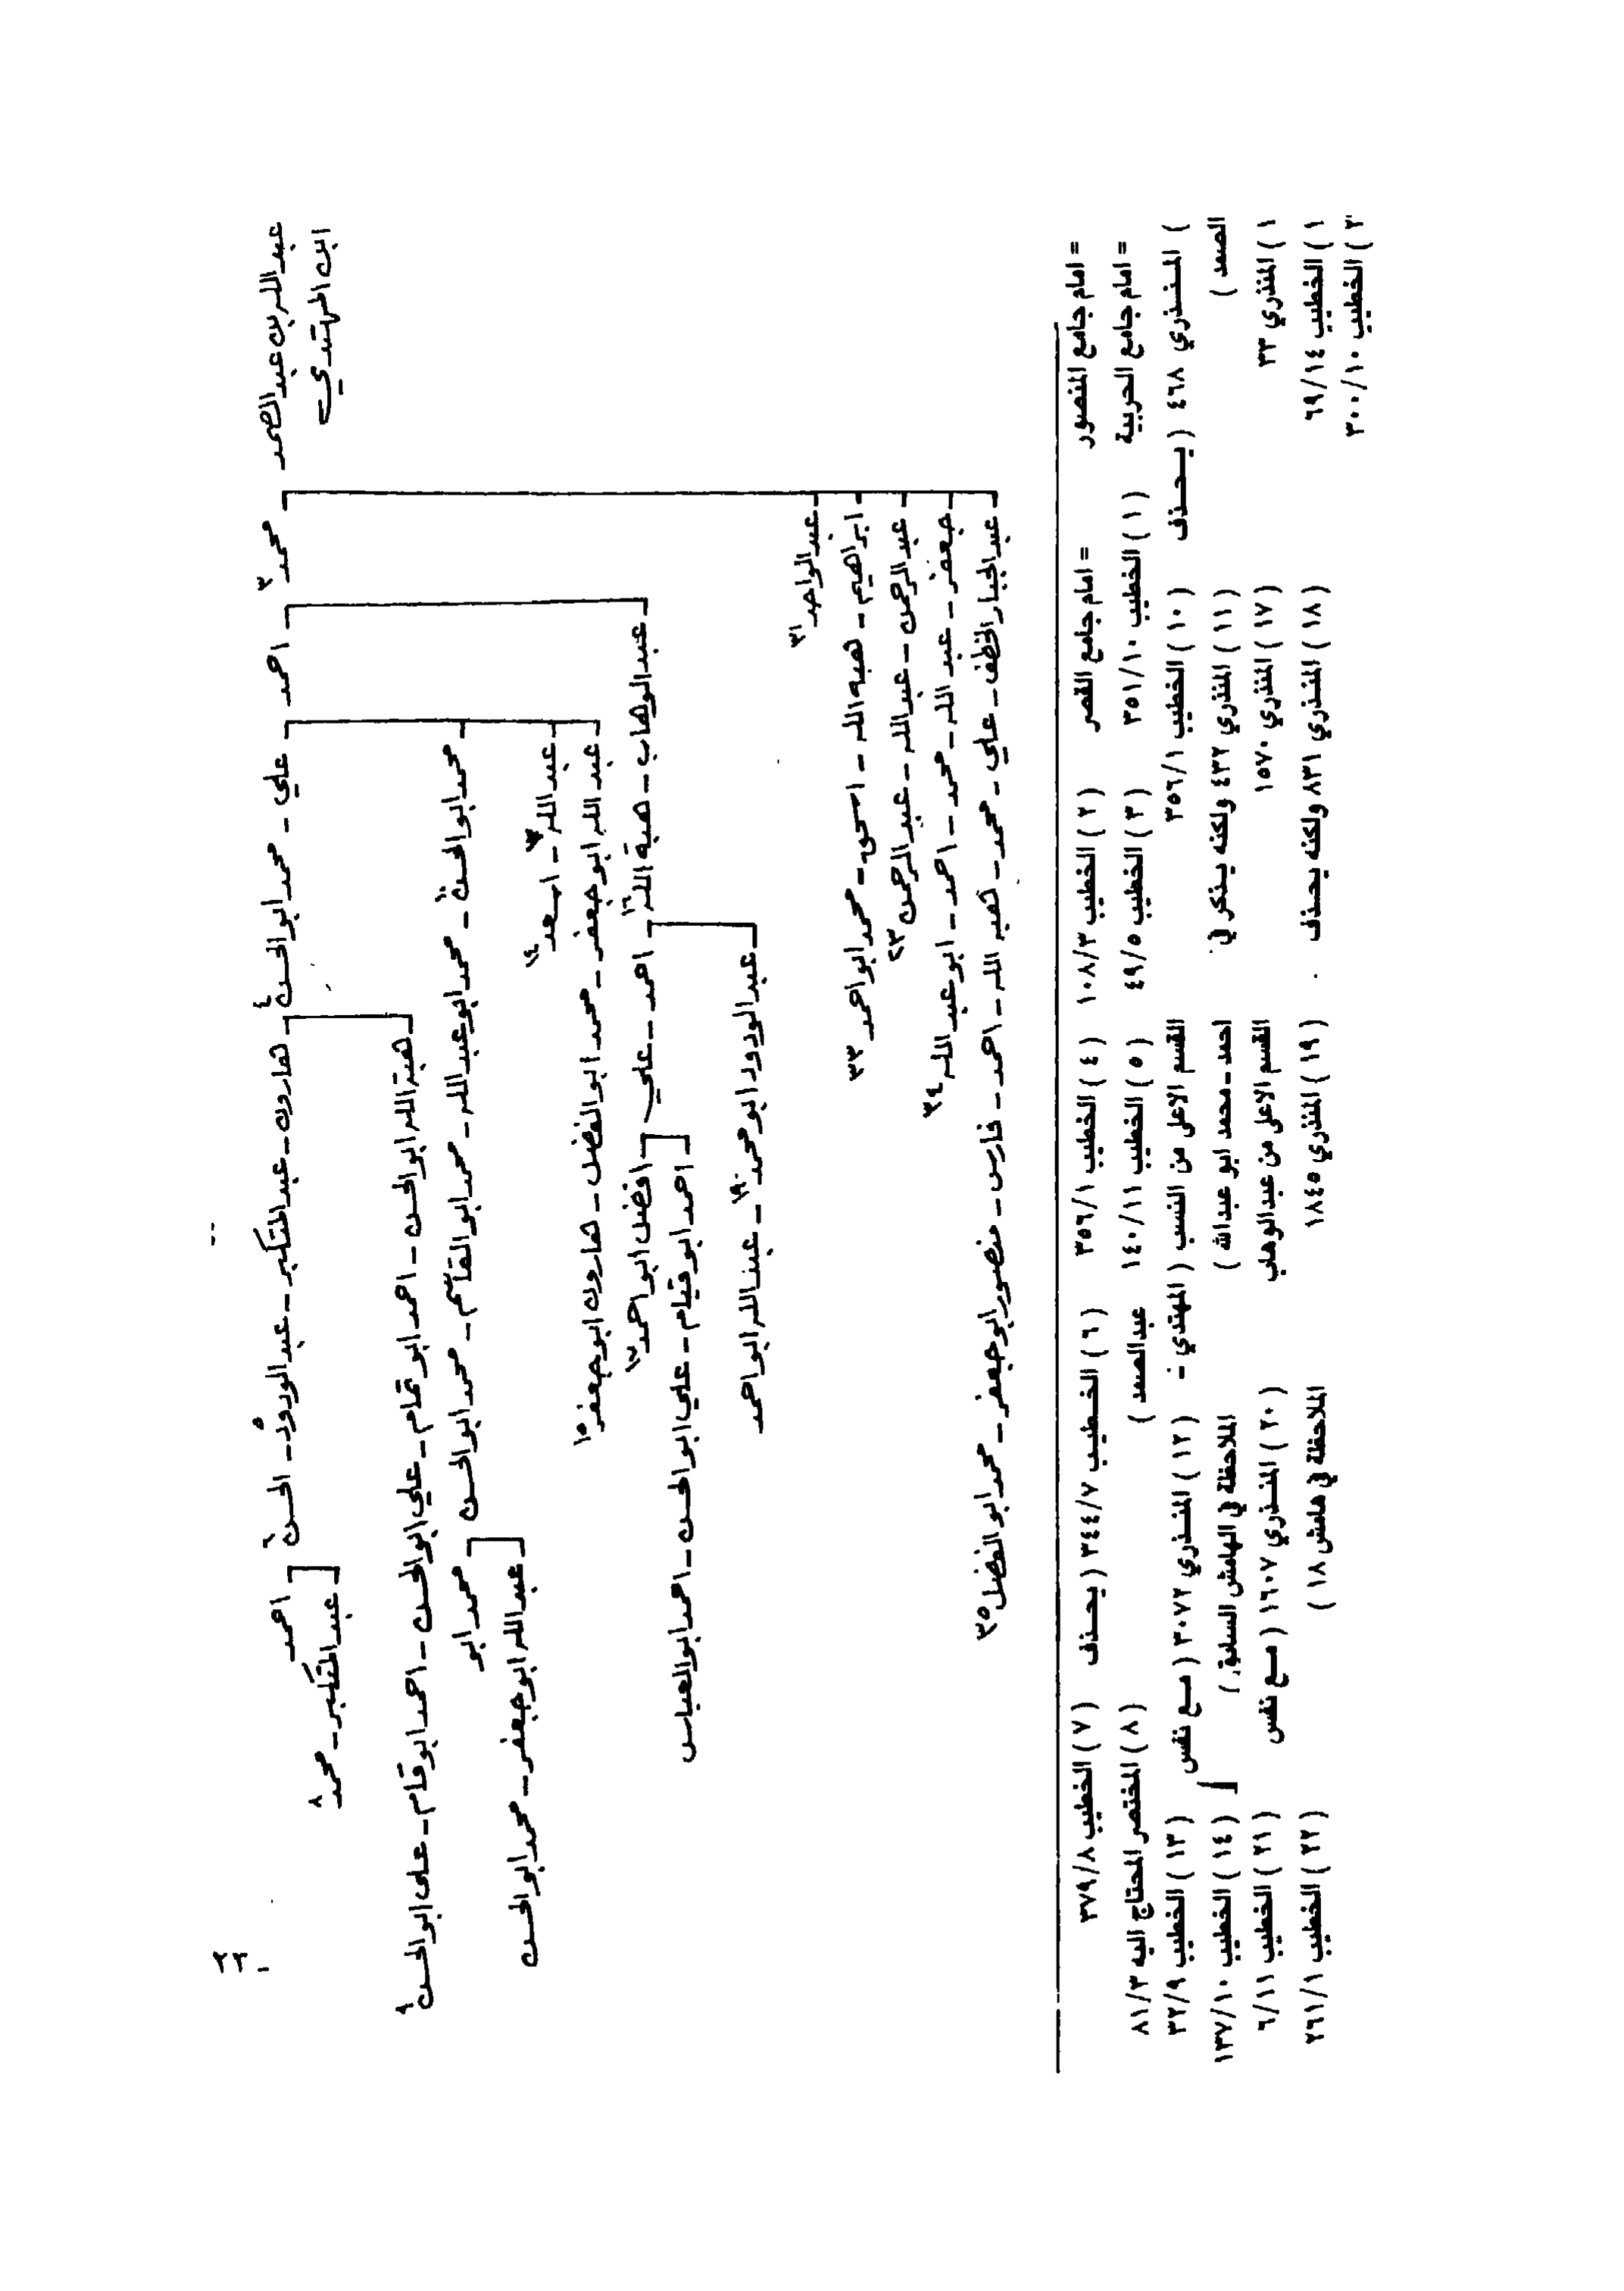 عبد الله بن عبد الصمد
ابن المهتدي
محمد ٣
احمد
علي - محمد ابو الحسن ٤
هارون - عبد المتكبر - عبد الودود ٥ - الحسن ٦
احمد
عبد المتكبر - محمد ٨
هبة الله ابو الحسن - احمد ابو تمام - علي ابو الحسن - احمد ابو تمام - علي ابو الحسن ٩
محمد ابو الحسن - محمد ابو عبد الله - محمد ابو القاسم - محمد ابو الحسن
محمد ابو
عبد الله ابو جعفر - محمد ابو الحسن
عبد الله - اسعد ١٤
عبد الله ابو جعفر - محمد ابو الفضل - هارون ابو جعفر ١٥
عبد الوهاب - هبة الله ١٦
احمد - علي
افضل ابو احمد ١٧
احمد ابو تمام - علي ابو الحسن - احمد ابو العباس
عبد الودود ابو محمد ١٩ - عبد الله ابو احمد
عبد الواحد ٢١
ابراهيم - هبه الله - اسحق - محمد ابو احمد ٢٢
عبد الرحمن - عبد الله - عبد الرحمن ٢٣
جعفر - عبد الله - محمد - احمد - ابو عبد الله ٢٤
عبد الجبار الخطف - علي - محمد - هبه الله - احمد - فارس - منصور ابو جعفر - محمد ابو الفضل ٢٥
= امام جامع المنصور
= امام جامع القصر
( ٢ ) الخطيب ١٠٨/٣
( ٤ ) الخطيب ٣٥٦/١
( ٦ ) الخطيب ٣٤٤/٧ ( يحذف
( ٧ ) الخطيب ٣٧٩/٨
= امام جامع الحربية
( ١ ) الخطيب ٣٥١/١٠
( ٣ ) الخطيب ٤٩/٥
( ٥ ) الخطيب ١٤٠/١١
عبد الصمد )
( ٨ ) المختصر المحتاج اليه ٨١/٣
) المنذري ٤٦٨ ( يحذف
( ١٠ ) الخطيب ٣٥٦/١
القسم الاعلى من النسب ( المهتدي -
( ١٢ ) المنذري ٣٠٧٢ ( مع نفس
( ١٣ ) الخطيب ٣٢/٩
الصمد )
( ١١ ) المنذري ٤٣٢ ولكنه يذكر في
احمد - محمد ابو عبدالله )
الملاحظة في الهامش السابق )
( ١٤ ) الخطيب ١٣٧/١٠
١ ) المنذري ٣٣
( ١٧ ) المنذري ١٥٧٠
القسم الاعلى من عبدالوهاب
( ٢٠ ) المنذري ١٦٠٧ ( مع نفس
( ٢١ ) الخطيب ٦/١١
١ ) الخطيب ٦٩/١٤
( ١٨ ) المنذري ٨٣١ ولكنه يحذف
( ١٩ ) المنذري ١٨٤٥
الملاحظة في هامش ١٨ )
( ٢٢ ) الخطيب ٢٦١/١
٢ ) الخطيب ٣٠٠/١٠